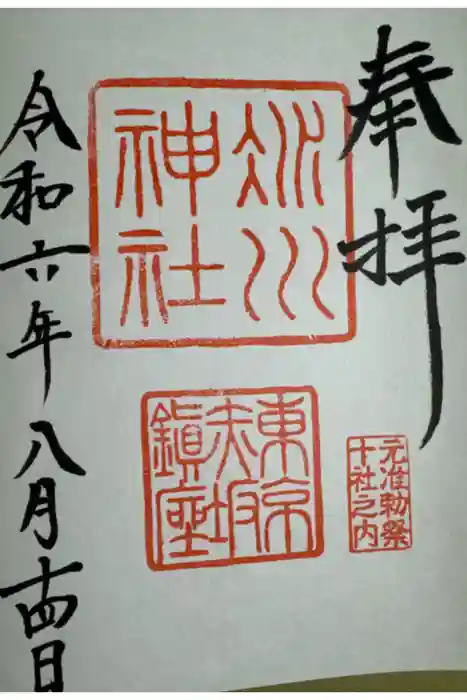 奉拝
氷川
神社
東京
赤坂
鎮座
元准勅祭
十社之内
令和六年八月十四日